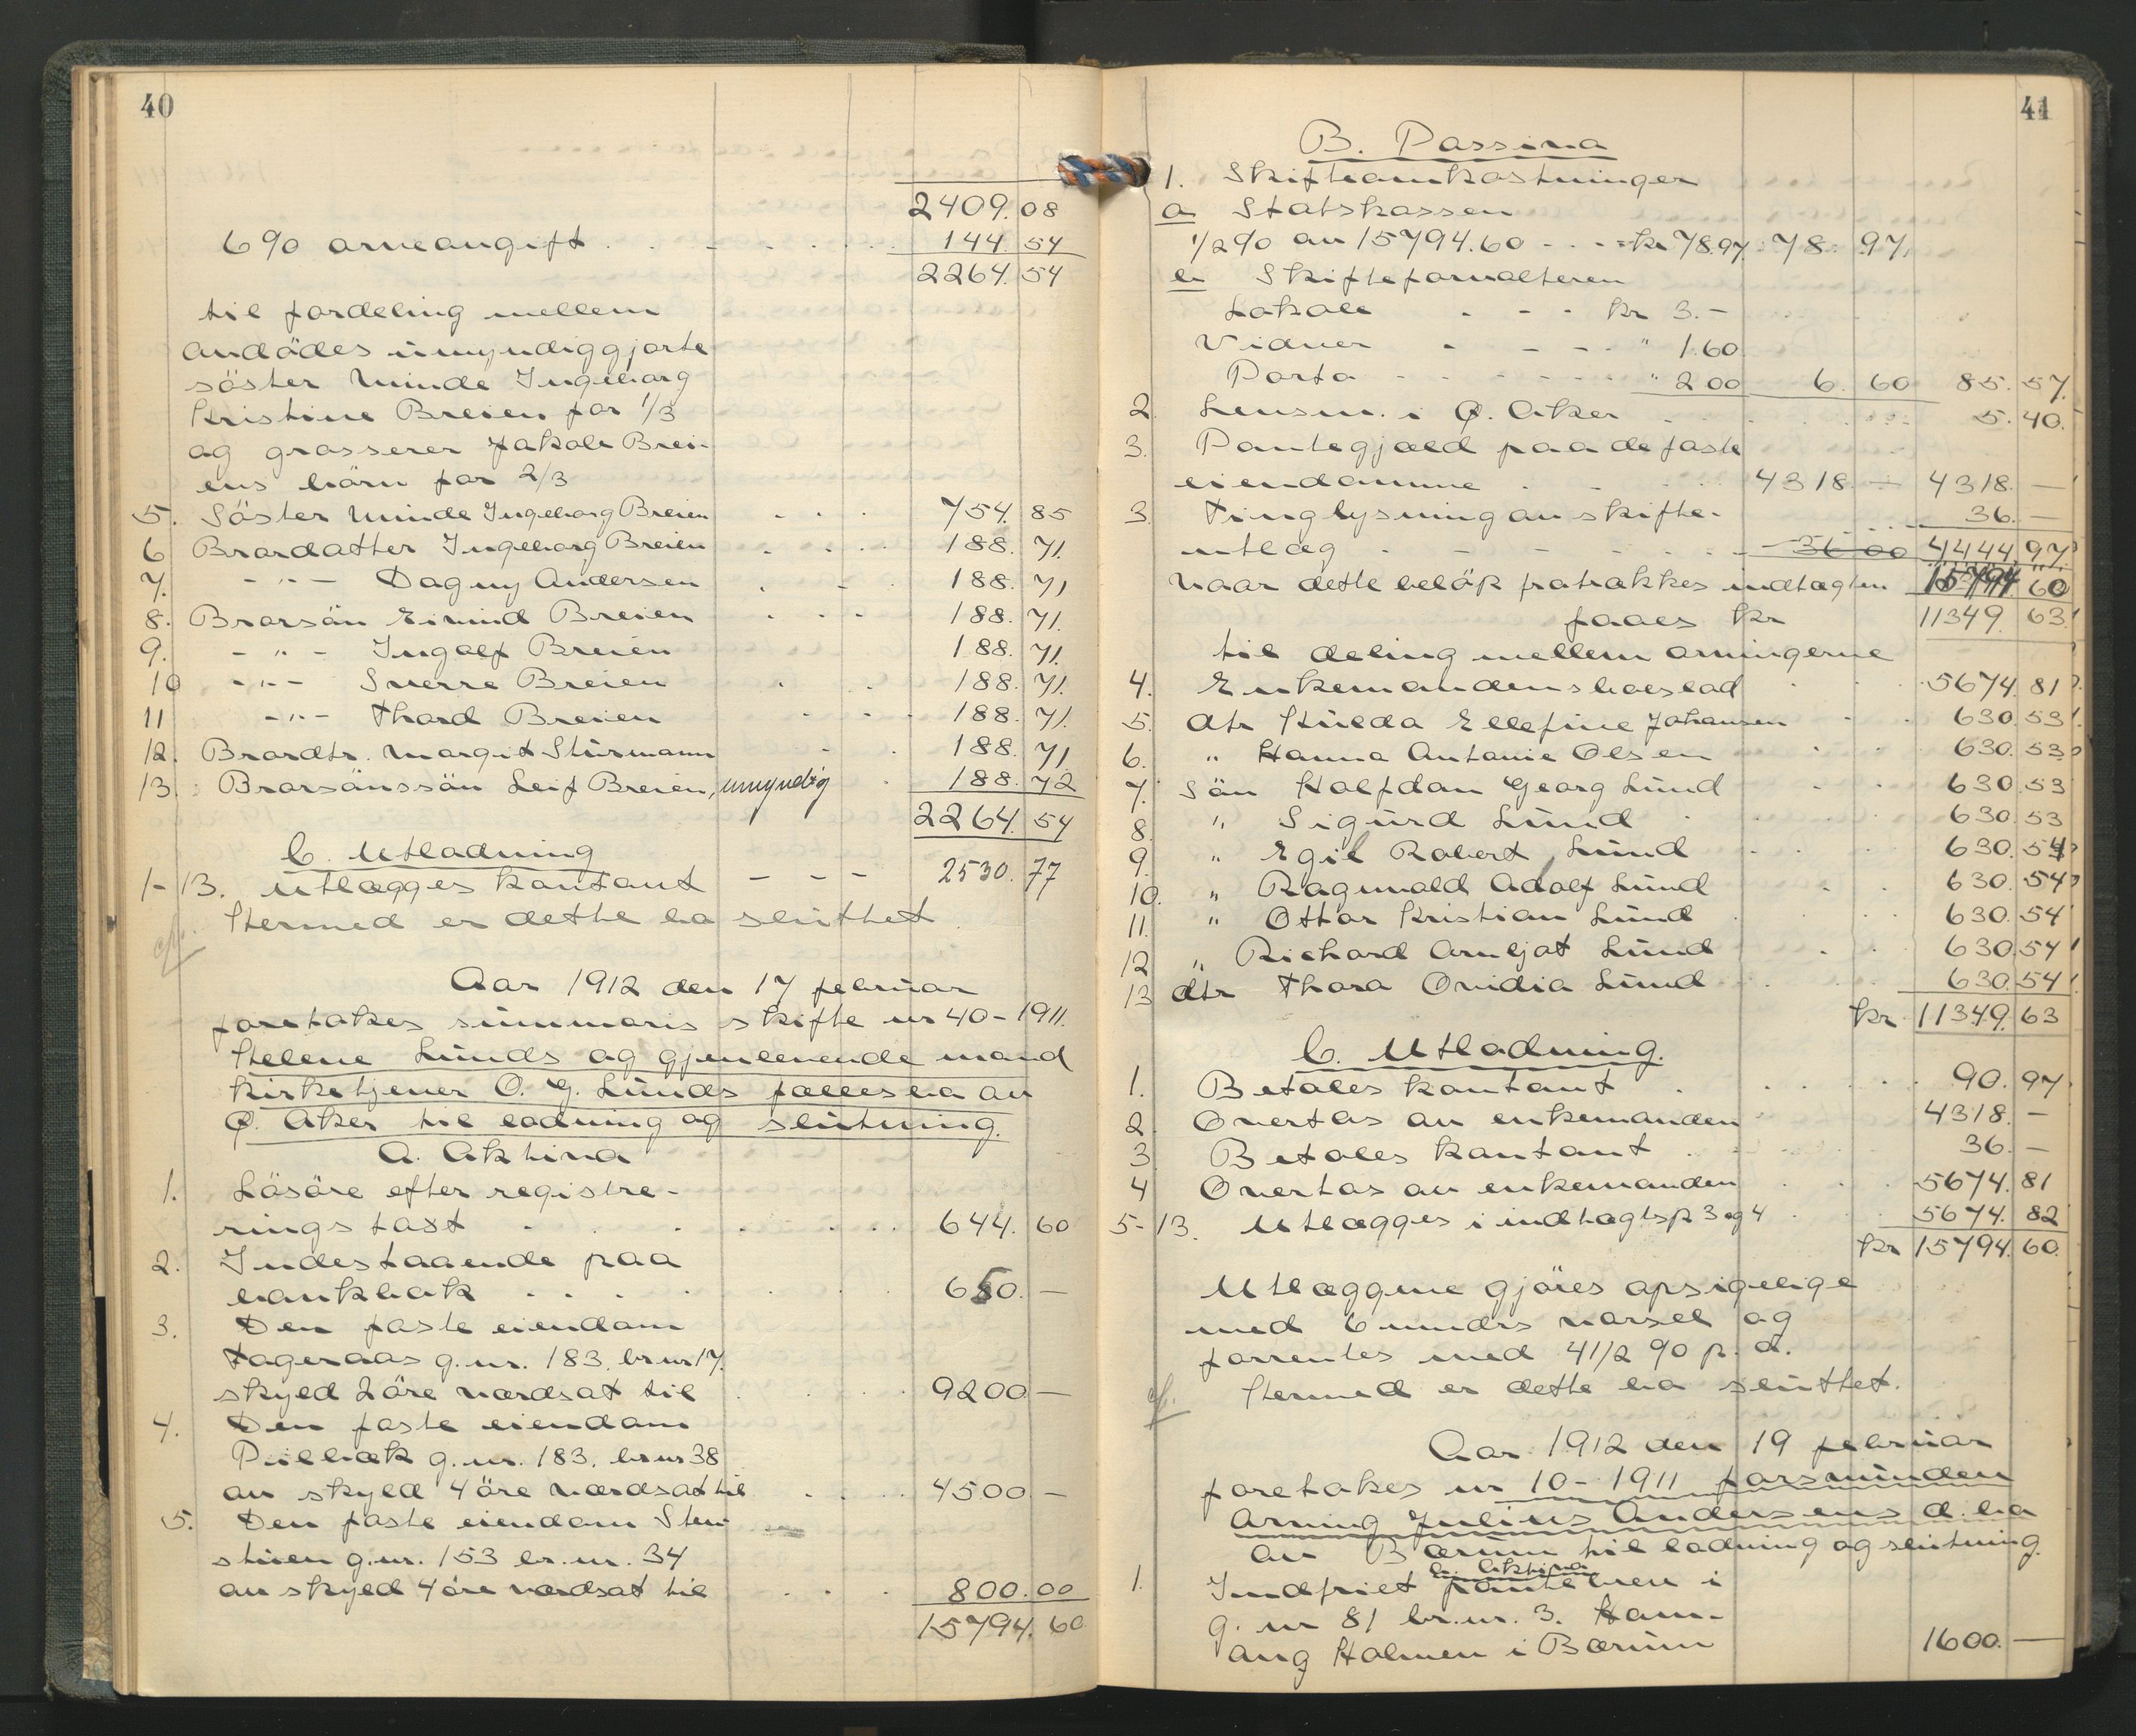 40
2409. 08
6% arveavgift . . . . . 144. 54
2264. 54
til fordeling mellem
avdødes umyndiggjorte
søster Minde Ingeborg
Kristine Breien for 1/3
og grosserer Jakob Brei-
ens børn for 2/3
5. Søster Minde Ingeborg Breien . . . 754. 85
6 Brordatter Ingeborg Breien . . . . 188. 71.
7. - " - Dagny Andersen . . 188. 71
8. Brorsøn Eivind Breien . . . 188. 71.
9. - " - Ingolf Breien 188. 71.
10 - " - Sverre Breien . . 188. 71.
11 - " - Thord Breien . . . 188. 71.
12. Brordtr. Margit Stürmann . . 188. 71
13. Brorsønssøn Leif Breien, umyndig . 188. 72
2264. 54
C. Utlodning
1-13. Utlægges kontant - - - 2530. 77
Hermed er dette bo sluttet.
Aar 1912 den 17 februar
foretokes summaris skifte nr 40-1911.
Helene Lunds og gjenlevende mand
kirketjener O. G. Lunds fællesbo av
Ø. Aker til lodning og slutning.
A. Aktiva
1. Løsøre efter registre-
rings takst . . . . . . 644. 60
2. Indestaaende paa
bankbok . . . . . . 650. —
3. Den faste eiendom
Hageraas g.nr. 183, br.nr 17.
skyld 2 øre værdsat til . . . 9200 —
4. Den faste eiendom
Pilbæk g.nr. 183, br.nr 38
av skyld 4 øre værdsat til . . . 4500 —
5. Den faste eiendom Sten-
stuen g.nr. 153 br.nr. 34
av skyld 4 øre værdsat til . . . 800. 00
15794. 60
41
B. Passiva
1. Skifteomkostninger
a Statskassen
1/2% av 15794.60 - - - = kr 78.97. 78. 97.
b Skifteforvalteren
Lokale . - - . kr 3. -
Vidner - - - - " 1.60
Porto - - - - - - " 2 00 6. 60 85. 57.
2. Lensm. i Ø. Aker . . . . 5. 40.
3. Pantegjæld paa de faste
eiendomme . - . . 4318. — 4318. —
3. Tinglysning av skifte- . . . 36. —
utlæg . - - - - . 36 00 4444 97
Naar dette beløp fratrækkes indtægten 15794 60
faaes kr 11349. 63
til deling mellem arvingerne
4. Enkemandens boeslod . . . 5674. 81
5. dtr Hulda Ellefine Johansen . . 630. 53
6. " Hanna Antonie Olsen . . 630. 53
7. Søn Halfdan Georg Lund . . 630. 53
8. " Sigurd Lund . . . 630. 53
9. " Egil Robert Lund . . 630. 54
10. " Ragnvald Adolf Lund . . 630. 54
11. " Ottar Kristian Lund . . . 630. 54
12 " Richard Arnljot Lund . . 630. 54
13 dtr Thora Ovidia Lund . . 630. 54
kr 11349. 63
C. Utlodning.
1. Betales kontant . . . . . 90. 97
2. Overtas av enkemanden . . . 4318. —
3 Betales kontant . . . . 36. —
4 Overtas av enkemanden . . . 5674. 81
5-13. Utlægges i indtægtsp. 3 og 4 . . 5674. 82
kr 15794. 60
Utlæggene gjøres opsigelige
med 6 mndrs varsel og
forrentes med 4 1/2 % p. a.
Hermed er dette bo sluttet.
Aar 1912 den 19 februar
foretokes nr 10 - 1911 forsvunden
arving Julius Andersens d. bo
av Bærum til lodning og slutning.
A. Aktiva
1. Indfriet panteobl. i
g. nr 81 br.nr. 3. Ham-
ang Holmen i Bærum 1600. —